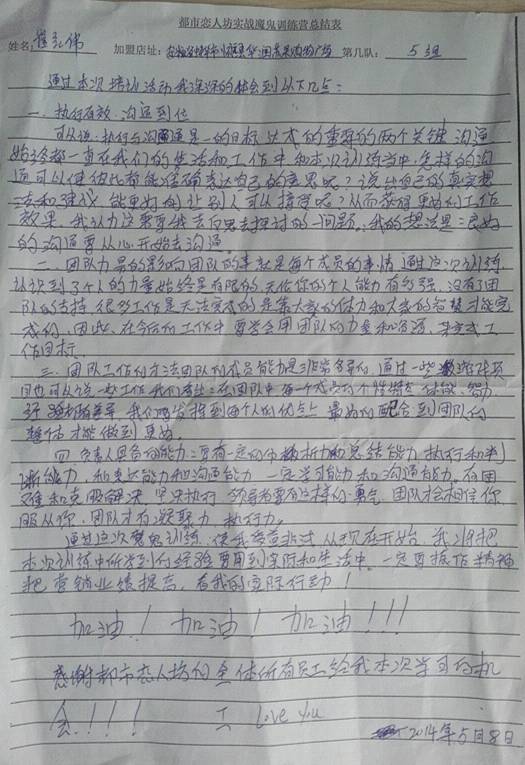 都市恋人坊实战魔鬼训练营总结表
姓名: 伟 加盟店址: 购物广场 第几队: 5组
通过本次培训活动我深深的体会到以下几点:
一、执行有效.沟通到位
可以说:执行与沟通是一的目标达成的重要的两个关键.沟通
始终都一直在我们的生活和工作中和本次训练当中.怎样的沟
通可以使彼此都能准确表达自己的意思呢?说出自己的真实想
法和建议 能更好的让别人可以接受呢?从而获得更好的工作
效果.我认为这需要我去反思去探讨的一问题.我的想法是:良好
的沟通要从心开始去沟通。
二.团队力量的影响团队的事就是每个成员的事情通过这次训练.
认识到了个人的力量始终是有限的.无论你的个人能力有多强.没有了团
队的支持.很多工作是无法完成的是靠大家的体力和大家的智慧才能完
成的.因此.在今后的工作中要学会用团队的力量和资源.来完成工
作目标.
三.团队工作的方法团队的成员能力是非常多样的.通过一些游戏项
目也可以说一些工作我们看出:在团队中每一个成员的个性特点 体能、智力
我们要发挥到每个人的优点上 最好的配合到团队的
整体才能做到更好.
四.负责人具备的能力:要有一定的分析力和总结能力 执行和判
断能力、和表达能力和沟通能力 一定学习能力和沟通能力.有困
难和克服解决 坚决执行 领导者要有这样的勇气.团队才会相信你
服从你.团队才有凝聚力.执行力。
通过这次魔鬼训练.使我受益非浅 从现在开始.我训把
本次训练中所学到的经验要用到实际和生活中.一定要振作精神
把营销业绩提高.看我的实际行动!
加油!加油!加油!!!
感谢都市恋人坊的全体所有员工给我本次学习的机
会!!!! I Love you
2014年5月8日